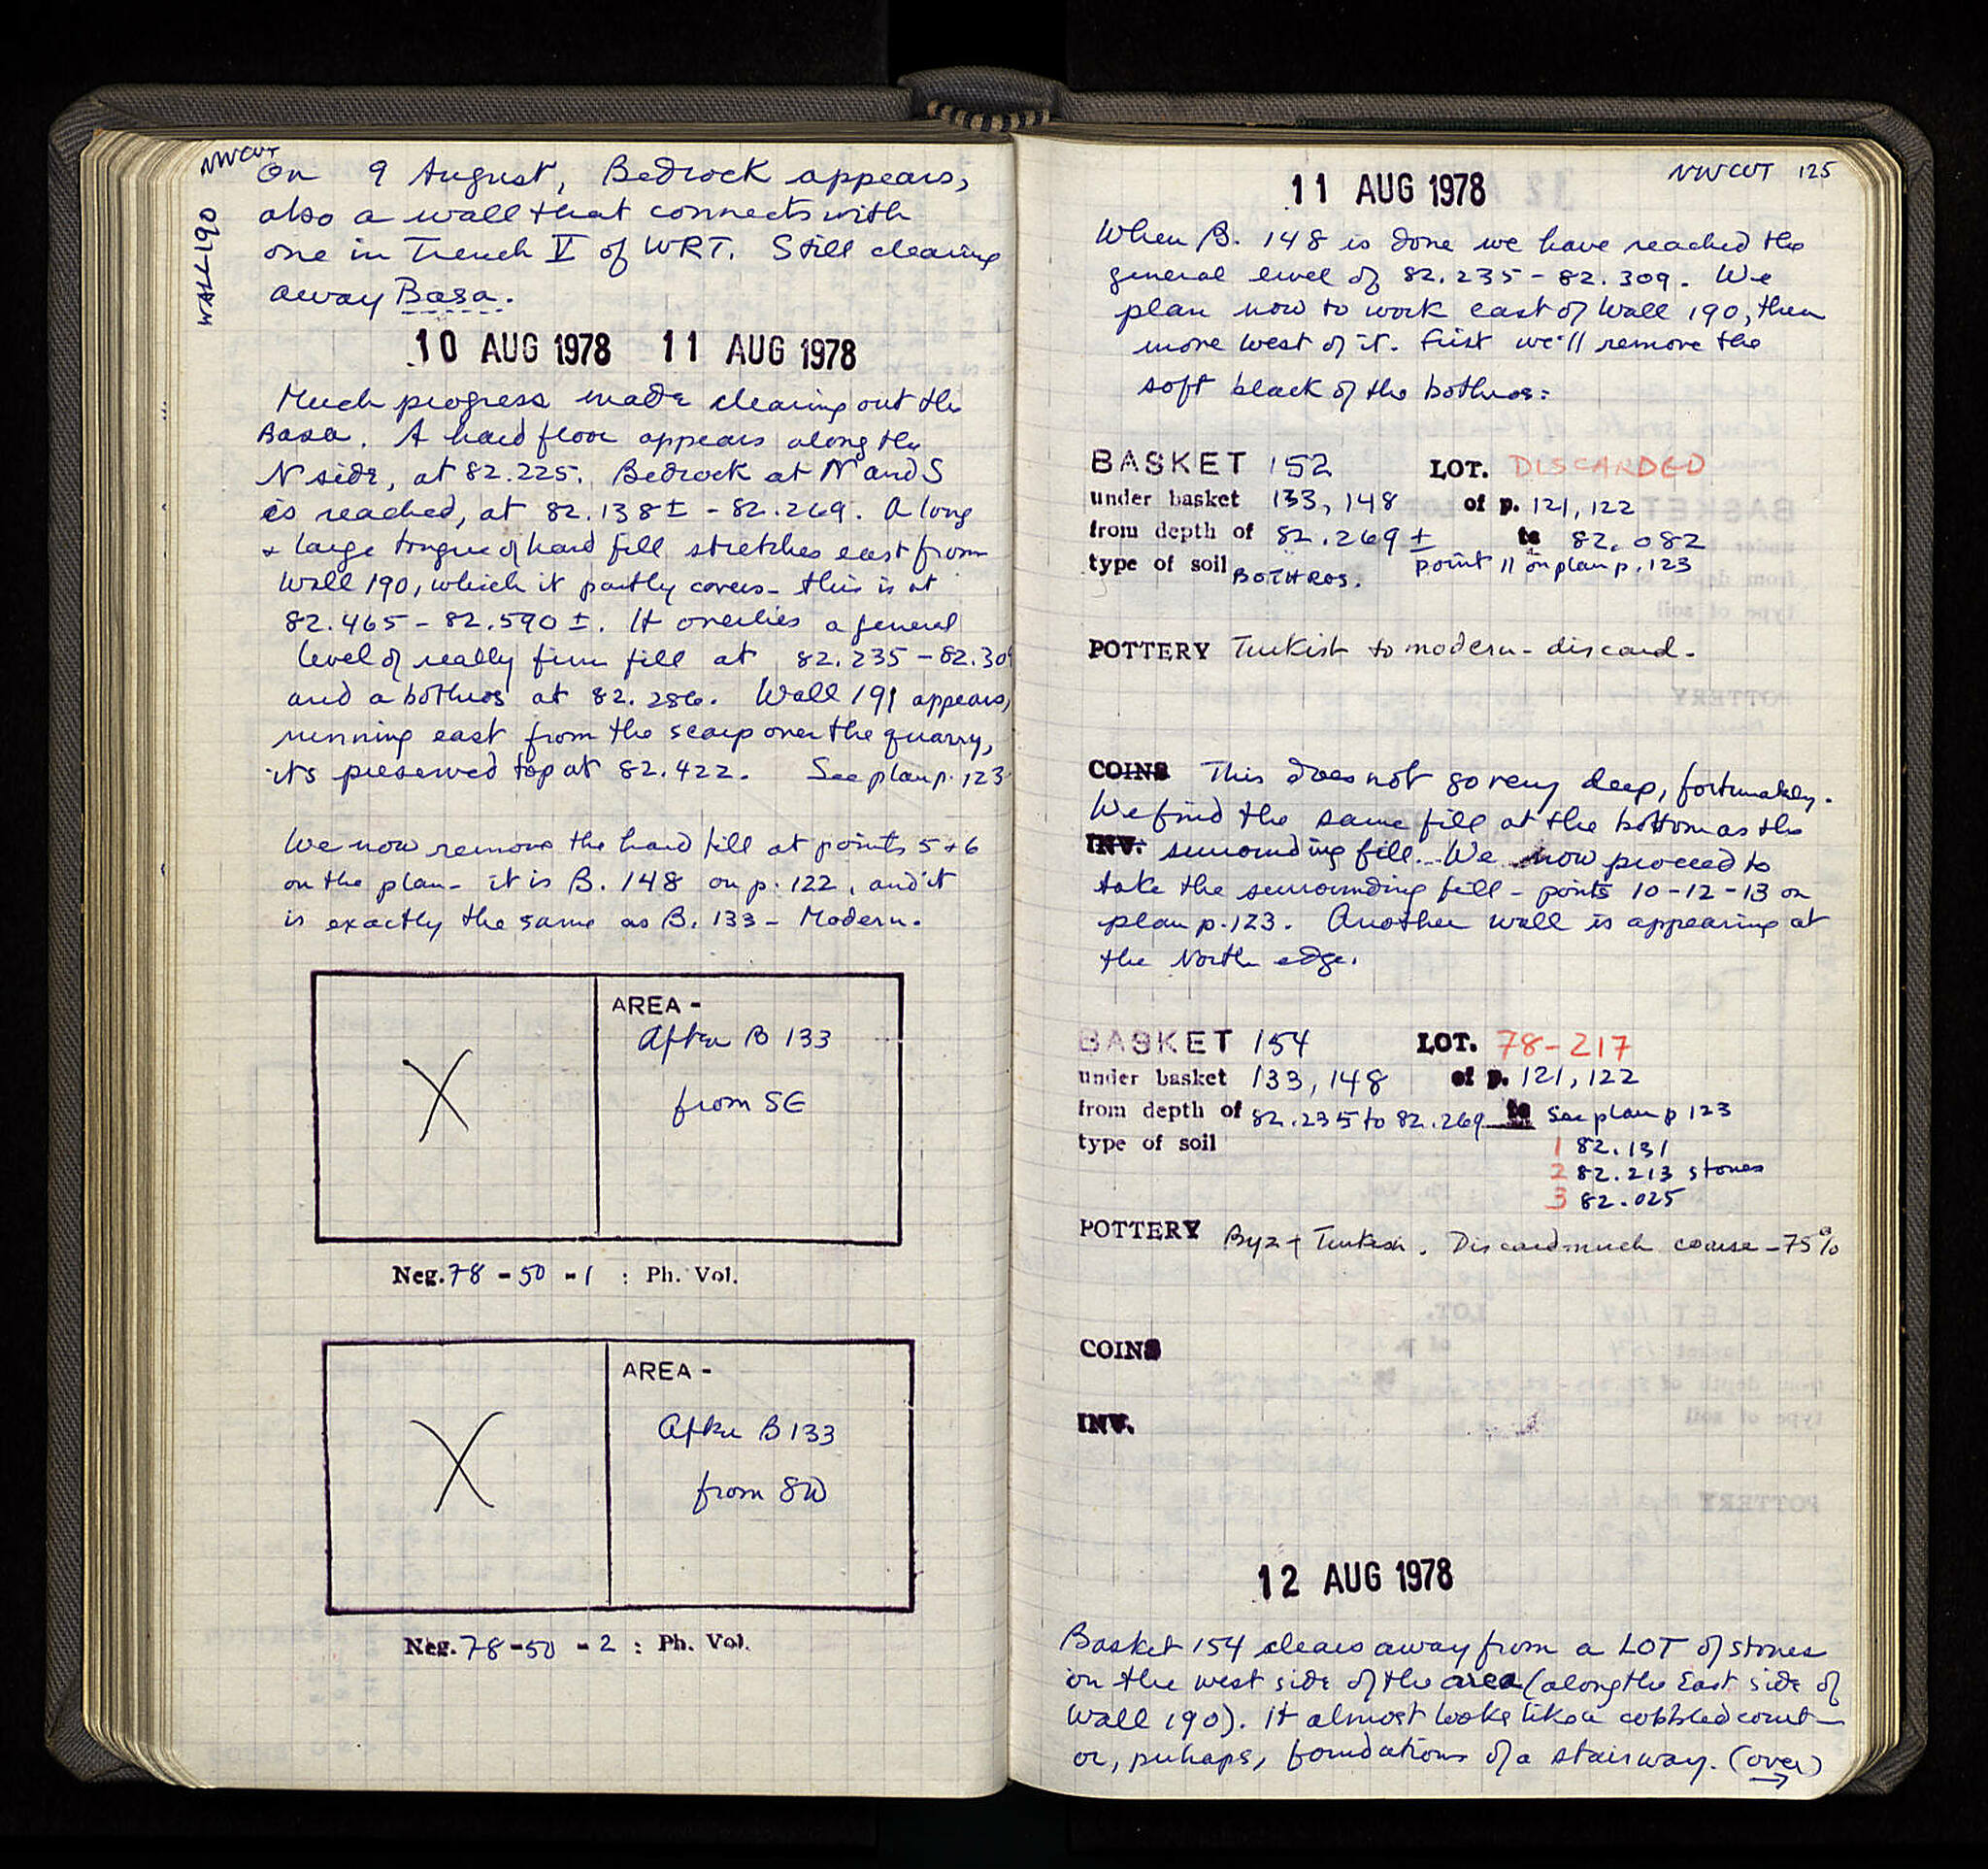 NW CUT
WALL 190
On 9 August, Bedrock appears,
also a wall that connects with
one in Trench V of WRT. Still clearing
away Basa.
10 AUG 1978 11 AUG 1978
Much progress made clearing out the
Basa. A hard floor appears along the
N side, at 82.225. Bedrock at N and S
is reached, at 82.138± - 82.269. A long
+ large tongue of hard fill stretches east from
Wall 190, which it partly covers - this is at
82.465 - 82.590±. It overlies a general
level of really firm fill at 82.235 - 82.309
and a bothros at 82.286. Wall 191 appears,
running east from the scarp over the quarry,
its preserved top at 82.422. See plan p. 123
We now remove the hard fill at points 5 + 6
on the plan - it is B. 148 on p. 122, and it
is exactly the same as B. 133 - Modern.
AREA -
After B 133
from SE
Neg. 78 - 50 - 1 : Ph. Vol.
AREA -
After B 133
from SW
Neg. 78 - 50 - 2 : Ph. Vol.
NW CUT 125
11 AUG 1978
When B. 148 is done we have reached the
general level of 82.235 - 82.309. We
plan now to work east of Wall 190, then
more west of it. First we'll remove the
soft black of the bothros:
BASKET 152 LOT. DISCARDED
under basket 133, 148 of p. 121, 122
from depth of 82.269± to 82.082
type of soil BOTHROS. point 11 on plan p. 123
POTTERY Turkish to modern - discard.
COINS This does not go very deep, fortunately.
We find the same fill at the bottom as the
INV. surrounding fill. We now proceed to
take the surrounding fill - points 10-12-13 on
plan p. 123. Another wall is appearing at
the North edge.
BASKET 154 LOT. 78-217
under basket 133, 148 of p. 121, 122
from depth of 82.235 to 82.269 to See plan p 123
type of soil 1 82.131
2 82.213 stones
3 82.025
POTTERY Byz + Turkish. Discard much coarse - 75%
COINS
INV.
12 AUG 1978
Basket 154 clears away from a LOT of stones
on the west side of the area (along the East side of
Wall 190). It almost looks like a cobbled court -
or, perhaps, foundations of a stairway. (over)